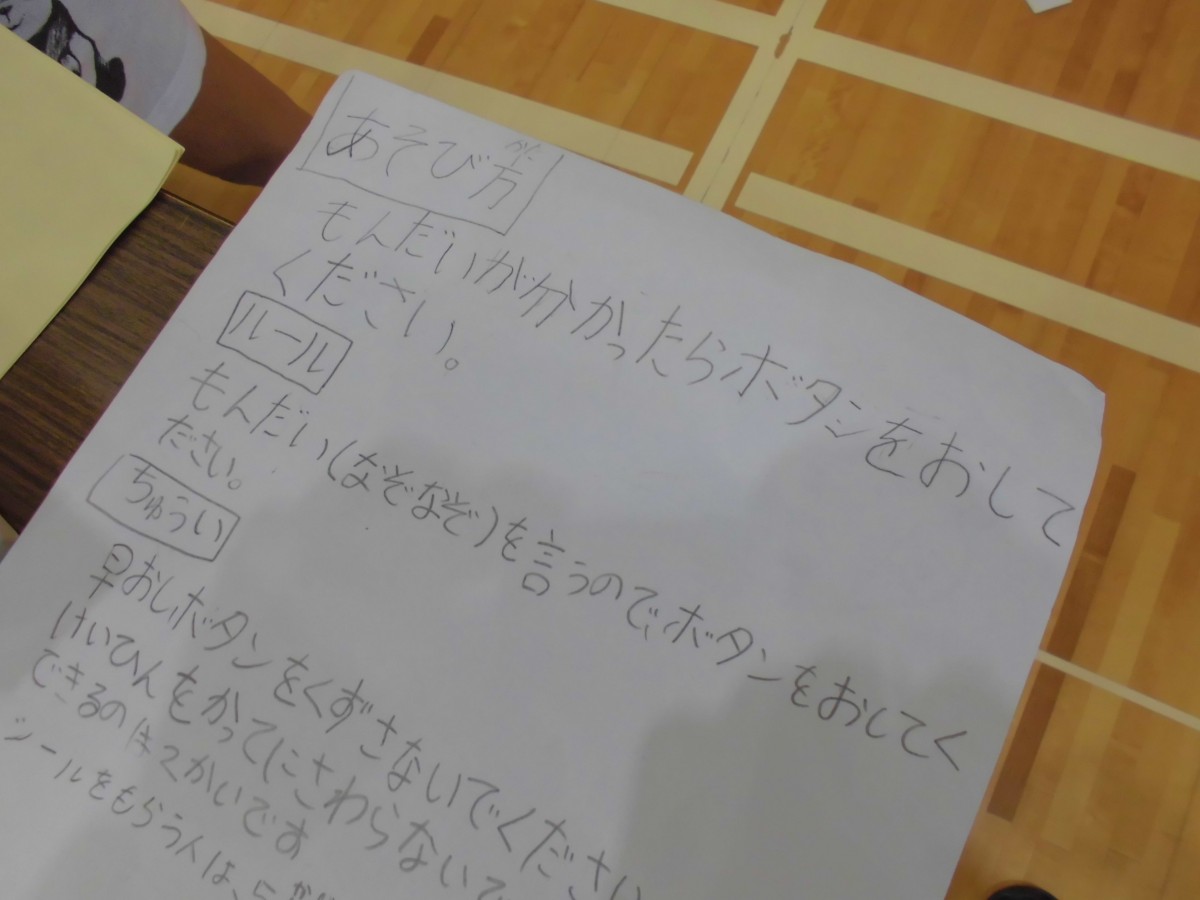 あそび方
かた
もんだいが分かったらボタンをおして
ください。
ルール
もんだい(なぞなぞ)を言うので、ボタンをおしてく
ださい。
ちゅうい
早おしボタンをくずさないでください
けいひんをかってにさわらないで
できるのは2かいです
シールをもらう人は、5